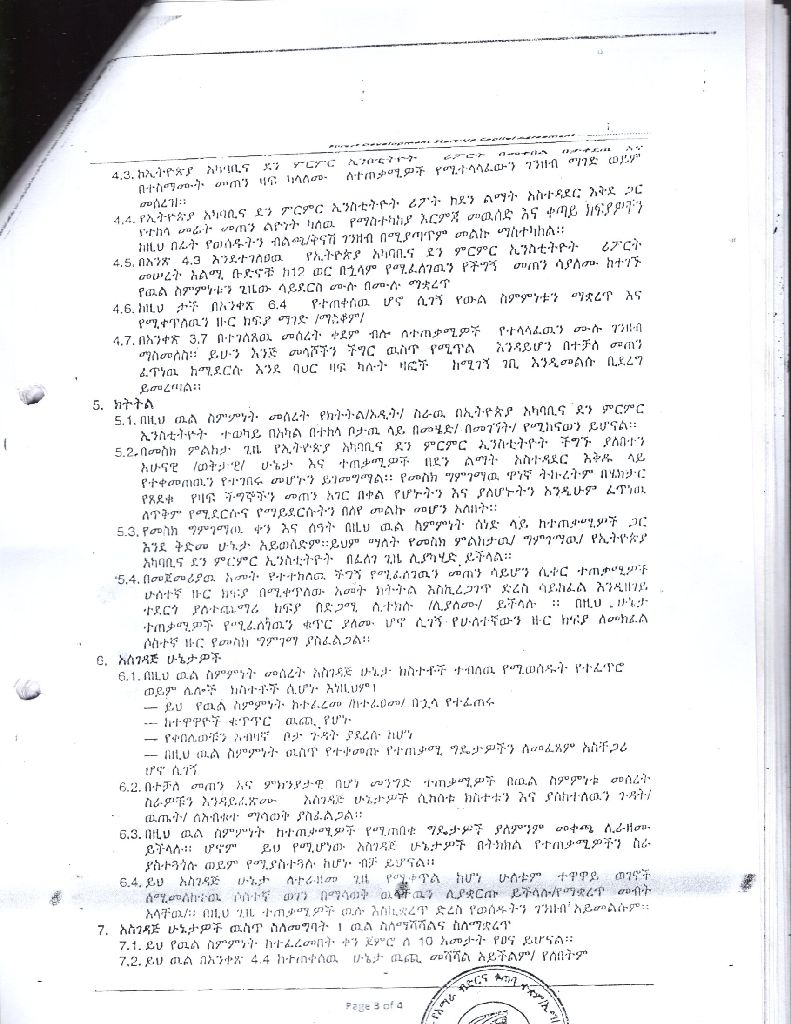 Forest Development Start-Up Capital Agreement
4.3. ከኢትዮጵያ አካባቢና ደን ምርምር ኢንስቲትዮት ሪፖርት
በተስማሙት መጠን ዛፍ ካላለሙ ለተጠቃሚዎች የሚተላለፈውን ገንዘብ ማገድ ወይም
መሰረዝ።
4.4. የኢትዮጵያ አካባቢና ደን ምርምር ኢንስቲትዮት ሪፖት ከደን ልማት አስተዳደር እቅደ ጋር
የተከላ መሬት መጠን ልዮነት ካለዉ የማስተካከያ እርምጃ መዉሰድ እና ቀጣይ ክፍያዎችን
ከዚህ በፊት የወሰዱትን ብልጫ/ቅናሽ ገንዘብ በሚያጣጥም መልኩ ማስተካከል።
4.5. በአንጽ 4.3 እንደተገለፀዉ የኢትዮጵያ አካባቢና ደን ምርምር ኢንስቲትዮት ሪፖርት
መሠረት አልሚ ቡድኖቹ ከ12 ወር በኋላም የሚፈለገዉን የችግኝ መጠን ሳያለሙ ከተገኙ
የዉል ስምምነቱን ጊዜው ሳይደርስ ሙሉ በሙሉ ማቋረጥ
4.6. ከዚህ ታች በአንቀጽ 6.4 የተጠቀሰዉ ሆኖ ሲገኝ የውል ስምምነቱን ማቋረጥ እና
የሚቀጥለዉን ዙር ክፍያ ማገድ /ማቋቆም/
4.7. በአንቀጽ 3.7 በተገለጸዉ መሰረት ቀደም ብሎ ለተጠቃሚዎች የተላላፈዉን ሙሉ ገንዘብ
ማስመለስ። ይሁን እንጅ መላሾችን ችግር ዉስጥ የሚጥል እንዳይሆን በተቻለ መጠን
ፈጥነዉ ከሚደርሱ እንደ ባህር ዛፍ ካሉት ዛፎች ከሚገኝ ገቢ እንዲመልሱ ቢደረግ
ይመረጣል።
5. ክትትል
5.1. በዚህ ዉል ስምምነት መሰረት የክትትል/ኦዲት/ ስራዉ በኢትዮጵያ አካባቢና ደን ምርምር
ኢንስቲትዮት ተወካይ በአካል በተከላ ቦታዉ ላይ በመሄድ/ በመገኘት/ የሚከናወን ይሆናል።
5.2. በመስክ ምልከታ ጊዜ የኢትዮጵያ አካባቢና ደን ምርምር ኢንስቲትዮት ችግኙ ያለበትን
አሁናዊ /ወቅታዊ/ ሁኔታ እና ተጠቃሚዎች በደን ልማት አስተዳደር እቅዱ ላይ
የተቀመጠዉን የተገበሩ መሆኑን ይገመግማል። የመስክ ግምገማዉ ዋነኛ ትኩረትም በሄክታር
የጸደቁ የዛፍ ችግኞችን መጠን አገር በቀል የሆኑትን እና ያልሆኑትን እንዲሁም ፈጥነዉ
ለጥቅም የሚደርሱና የማይደርሱትን በለየ መልኩ መሆን አለበት።
5.3. የመስክ ግምገማዉ ቀን እና ሰዓት በዚህ ዉል ስምምነት ሰነድ ላይ ከተጠቃሚዎች ጋር
እንደ ቅድመ ሁኔታ አይወሰድም።ይህም ማለት የመስክ ምልከታዉ/ ግምገማዉ/ የኢትዮጵያ
አካባቢና ደን ምርምር ኢንስቲትዮት በፈለገ ጊዜ ሊያካሂድ ይችላል።
5.4. በመጀመሪያዉ አመት የተተከለዉ ችግኝ የሚፈለገዉን መጠን ሳይሆን ሲቀር ተጠቃሚዎች
ሁለተኛ ዙር ክፍያ በሚቀጥለው አመት ክትትል እስኪረጋገጥ ድረስ ሳይከፈል እንዲዘገይ
ተደርጎ ያለተጨማሪ ክፍያ በድጋሚ ሊተክሉ /ሊያለሙ/ ይችላሉ ። በዚህ ሁኔታ
ተጠቃሚዎች የሚፈለገዉን ቁጥር ያለሙ ሆኖ ሲገኝ የሁለተኛውን ዙር ክፍያ ለመክፈል
ሶስተኛ ዙር የመስክ ግምገማ ያስፈልጋል።
6. አስገዳጅ ሁኔታዎች
6.1. በዚህ ዉል ስምምነት መሰረት አስገዳጅ ሁኔታ ክስተቶች ተብለዉ የሚወሰዱት የተፈጥሮ
ወይም ሌሎች ክስተቶች ሲሆኑ እነዚህም፤
— ይህ የዉል ስምምነት ከተፈረመ /ከተፈፀመ/ በኋላ የተፈጠሩ
— ከተዋዋዮች ቁጥጥር ዉጪ የሆኑ
— የቀበሌወቹን አብዛኛ ቦታ ጉዳት ያደረሱ ከሆነ
— በዚህ ዉል ስምምነት ዉስጥ የተቀመጡ የተጠቃሚ ግዴታዎችን ለመፈጸም አስቸጋሪ
ሆኖ ሲገኝ
6.2. በተቻለ መጠን እና ምክንያታዊ በሆነ መንግድ ተጠቃሚዎች በዉል ስምምነቱ መሰረት
ስራዎቹን እንዳይፈጽሙ አስገዳጅ ሁኔታዎች ሲከሰቱ ክስተቱን እና ያስከተለዉን ጉዳት/
ዉጤት/ ለአብቁተ ማሳወቅ ያስፈልጋል።
6.3. በዚህ ዉል ስምምነት ከተጠቃሚዎች የሚጠበቁ ግዴታዎች ያለምንም መቀጫ ሊራዘሙ
ይችላሉ። ሆኖም ይህ የሚሆነው አስገዳጅ ሁኔታዎች በትክክል የተጠቃሚዎችን ስራ
ያስተጓጎሉ ወይም የሚያስተጓጉሉ ከሆኑ ብቻ ይሆናል።
6.4. ይህ አስገዳጅ ሁኔታ ለተራዘመ ጊዜ የሚቀጥል ከሆነ ሁለቱም ተዋዋይ ወገኖች
ለሚመለከተዉ ሶስተኛ ወገን በማሳወቅ ዉላቸዉን ሊያቋርጡ ይችላሉ/የማቋረጥ መብት
አላቸዉ/። በዚህ ጊዜ ተጠቃሚዎች ዉሉ እስኪቋረጥ ድረስ የወሰዱትን ገንዘብ አይመልሱም።
7. አስገዳጅ ሁኔታዎች ዉስጥ ስለመግባት ፤ ዉል ስለማሻሻልና ስለማቋረጥ
7.1. ይህ የዉል ስምምነት ከተፈረመበት ቀን ጀምሮ ለ 10 አመታት የፀና ይሆናል።
7.2. ይህ ዉል በአንቀጽ 4.4 ከተጠቀሰዉ ሁኔታ ዉጪ መሻሻል አይችልም/ የለበትም
Page 3 of 4